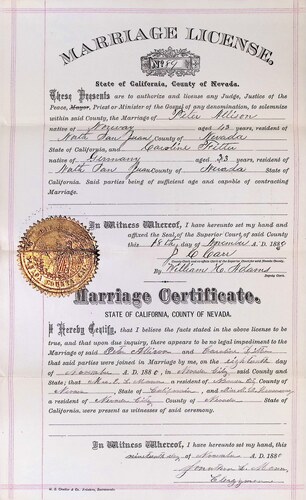 MARRIAGE LICENSE,
No. 19
State of California, County of Nevada.
These Presents are to authorize and license any Judge, Justice of the
Peace, Mayor, Priest or Minister of the Gospel of any denomination, to solemnize
within said County, the Marriage of Peter Allison
native of Norway aged 43 years, resident of
North San Juan County of Nevada
State of California, and Caroline
native of Germany aged 33 years, resident of
North San Juan County of Nevada State of
California. Said parties being of sufficient age and capable of contracting
Marriage.
In Witness Whereof, I have hereunto set my hand and
affixed the Seal of the Superior Court, of said County
this 18th day of November A.D. 1880
J. C. Carr
By William K. Adams
Deputy Clerk.
Marriage Certificate.
STATE OF CALIFORNIA, COUNTY OF NEVADA.
I Hereby Certify, that I believe the facts stated in the above license to
be true, and that upon due inquiry, there appears to be no legal impediment to the
Marriage of said Peter Allison and Caroline
that said parties were joined in Marriage by me, on the eighteenth day
of November A.D. 1880, in Nevada City said County and
State; that a resident of Nevada City County of
Nevada State of California, and
a resident of Nevada City County of Nevada State of
California, were present as witnesses of said ceremony.
In Witness Whereof, I have hereunto set my hand this
day of November A.D. 1880
Clergyman